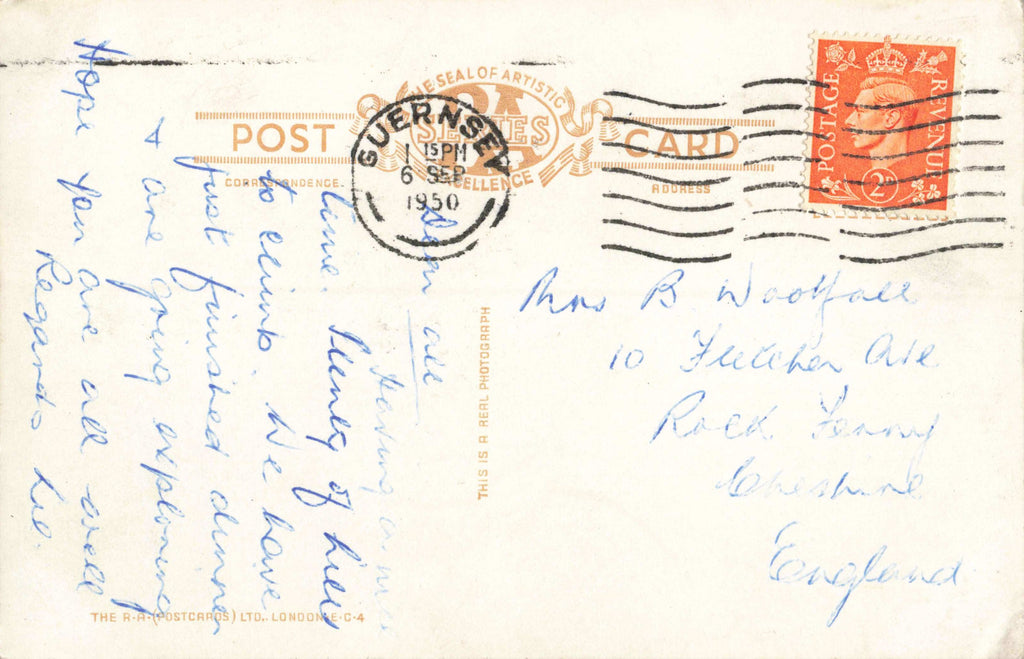 THE SEAL OF ARTISTIC
RA
SERIES
EXCELLENCE
POST CARD
CORRESPONDENCE.
ADDRESS
GUERNSEY
1 15 PM
6 SEP
1950
POSTAGE
REVENUE
2D
Dear all
Having a nice
time. Plenty of hills
to climb. We have
just finished dinner
& are going exploring
Hope you are all well
Regards
THIS IS A REAL PHOTOGRAPH
Mrs B Woolfall
10 Fletcher Ave
Rock Ferry
Cheshire
England
THE R.A. (POSTCARDS) LTD., LONDON. E.C.4